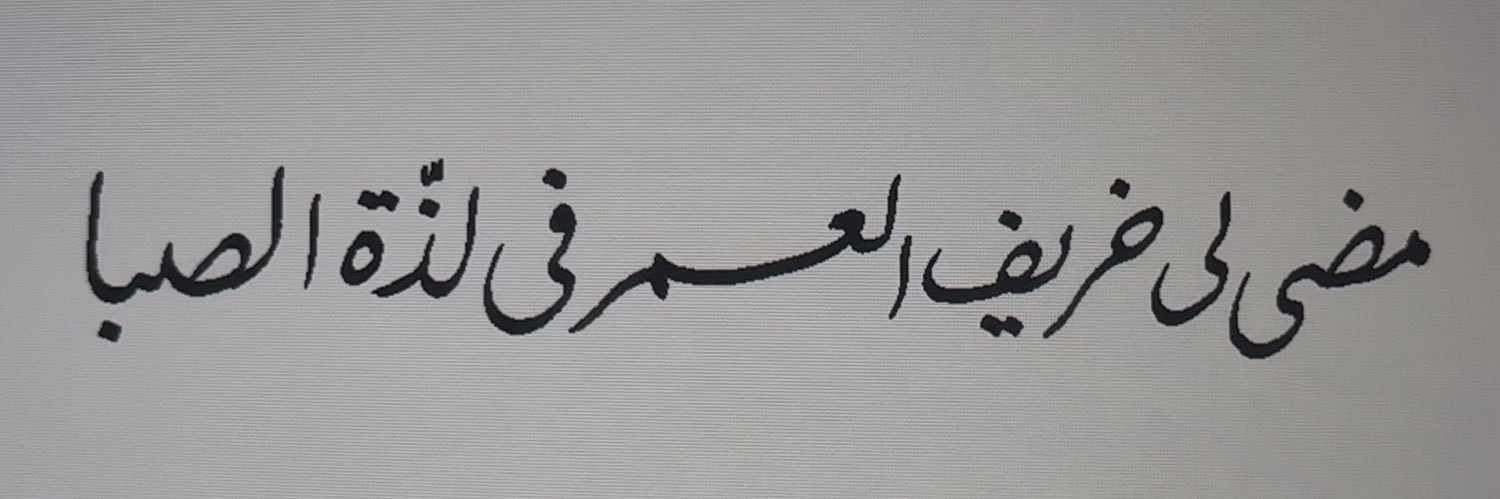 مضى لى خريف العمر فى لذّة الصبا